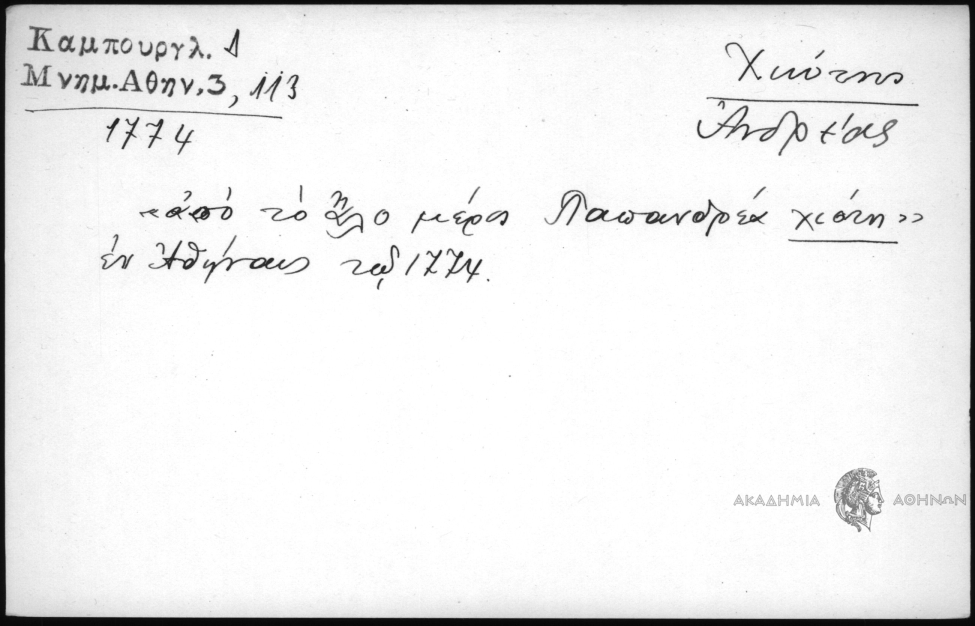 Καμπουργλ. Δ
Μνημ.Αθην.3, 113
1774
Χιώτης
Ἀνδρέας
«ἀπό τό ἄλο μέρος Παπανδρέα χιότη»
ἐν Ἀθήναις τῷ 1774.
ΑΚΑΔΗΜΙΑ ΑΘΗΝΩΝ